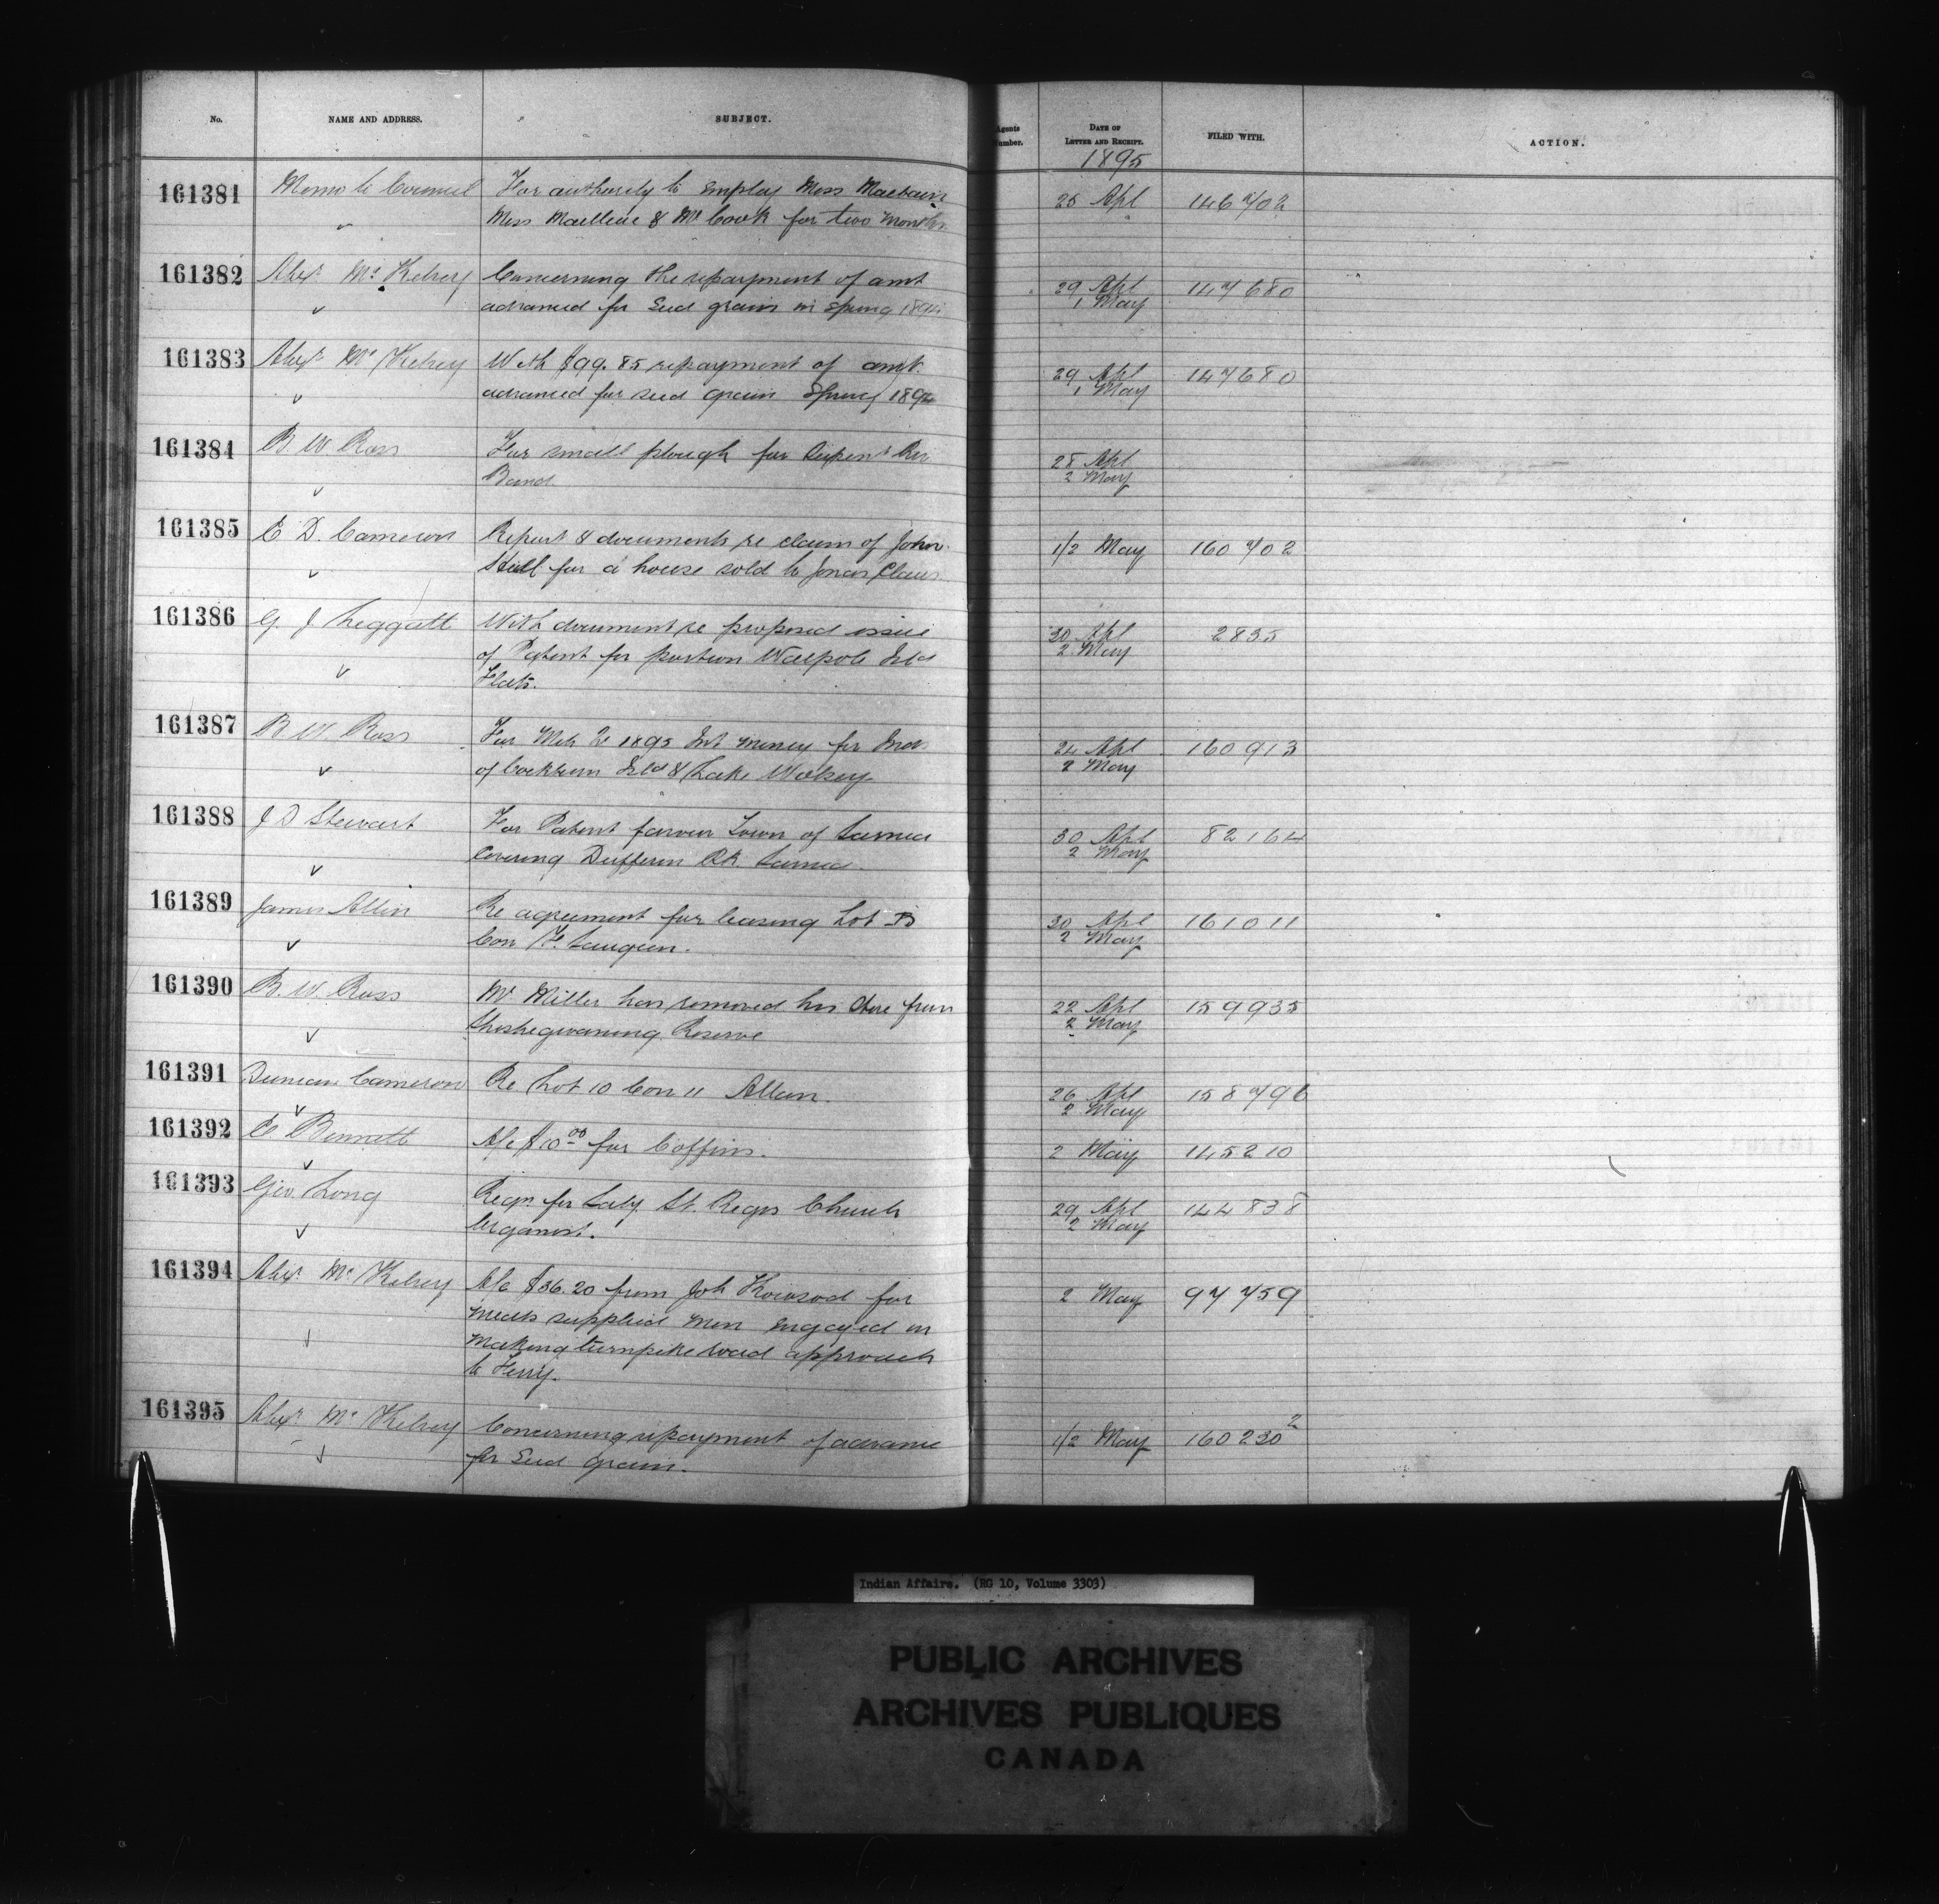 No. NAME AND ADDRESS. SUBJECT. Agents Number. DATE OF LETTER AND RECEIPT. FILED WITH. ACTION.
1895
161381 Memo to Council For authority to employ Miss
Miss & Mr Cook for two months 25 Apl 146702
161382 Alexr McKelvey Concerning the repayment of amt
advanced for seed grain in Spring 189 29 Apl 1 May 147680
161383 Alexr McKelvey With $99.85 repayment of amt.
advanced for seed grain Spring 1894 29 Apl 1 May 147680
161384 B. W. Ross For small plough for Serpent Riv
Band 28 Apl 2 May
161385 E. D. Cameron Report & documents re claim of John
Hill for a house sold to Jonas Claus 1/2 May 160702
161386 G. J. Leggatt With document re proposed issue
of Patent for portion Walpole Isld
Flats. 30 Apl 2 May 2835
161387 B. W. Ross For Mch 1895 Int money for Inds
of Cockburn Isld & Lake Wolsey 24 Apl 2 May 160913
161388 J D Stewart For Patent favour Town of Sarnia
covering Dufferin Pk. Sarnia. 30 Apl 2 May 82164
161389 James Allen Re agreement for leasing Lot B
Con Saugeen. 30 Apl 2 May 161011
161390 B. W. Ross Mr Miller has removed his store from
Sheshegwaning Reserve 22 Apl 2 May 159935
161391 Duncan Cameron Re Lot 10 Con 11 Allan. 26 Apl 2 May 158796
161392 E Bennett A/c $10.00 for Coffins. 2 May 145210
161393 Geo. Long Reqn. for Saly. St. Regis Church
Organist. 29 Apl 2 May 144838
161394 Alexr McKelvey A/c $36.20 from Joh for
meals supplied men engaged in
making turnpike road approach
to Ferry. 2 May 97759
161395 Alexr McKelvey Concerning repayment of advance
for seed grain. 1/2 May 160230 2
Indian Affairs. (RG 10, Volume 3303)
PUBLIC ARCHIVES
ARCHIVES PUBLIQUES
CANADA